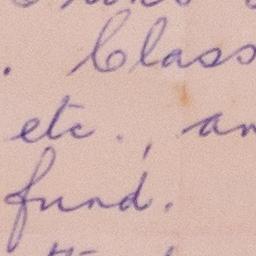 . Class
etc., an
fund.